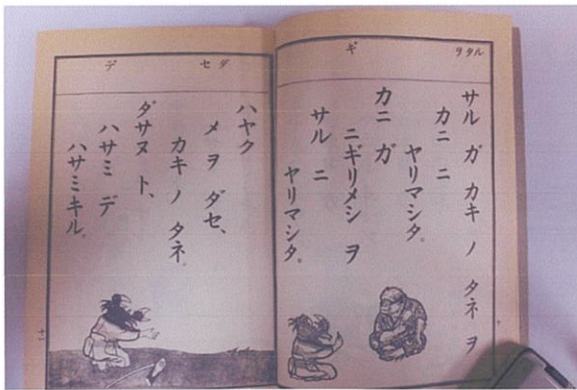 ヲタル
サル ガ カキ ノ タネ ヲ
カニ ニ
ヤリマシタ。
ギ
カニ ガ
ニギリメシ ヲ
サル ニ
ヤリマシタ。
十
ダ セ
デ
ハヤク
メ ヲ ダセ、
カキ ノ タネ。
ダサヌ ト、
ハサミ デ
ハサミキル。
十一